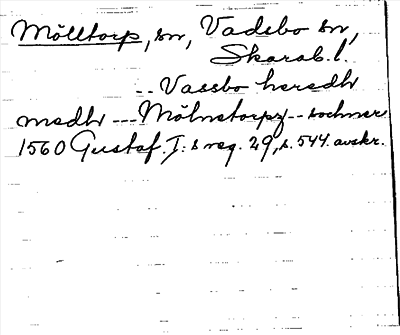 Mölltorp, sn, Vadsbo sn,
Skarab. l.
-- Vassboheredh
medh --- Mölnetorpz -- sochner
1560 Gustaf. I: s reg. 29, s. 544. avskr.